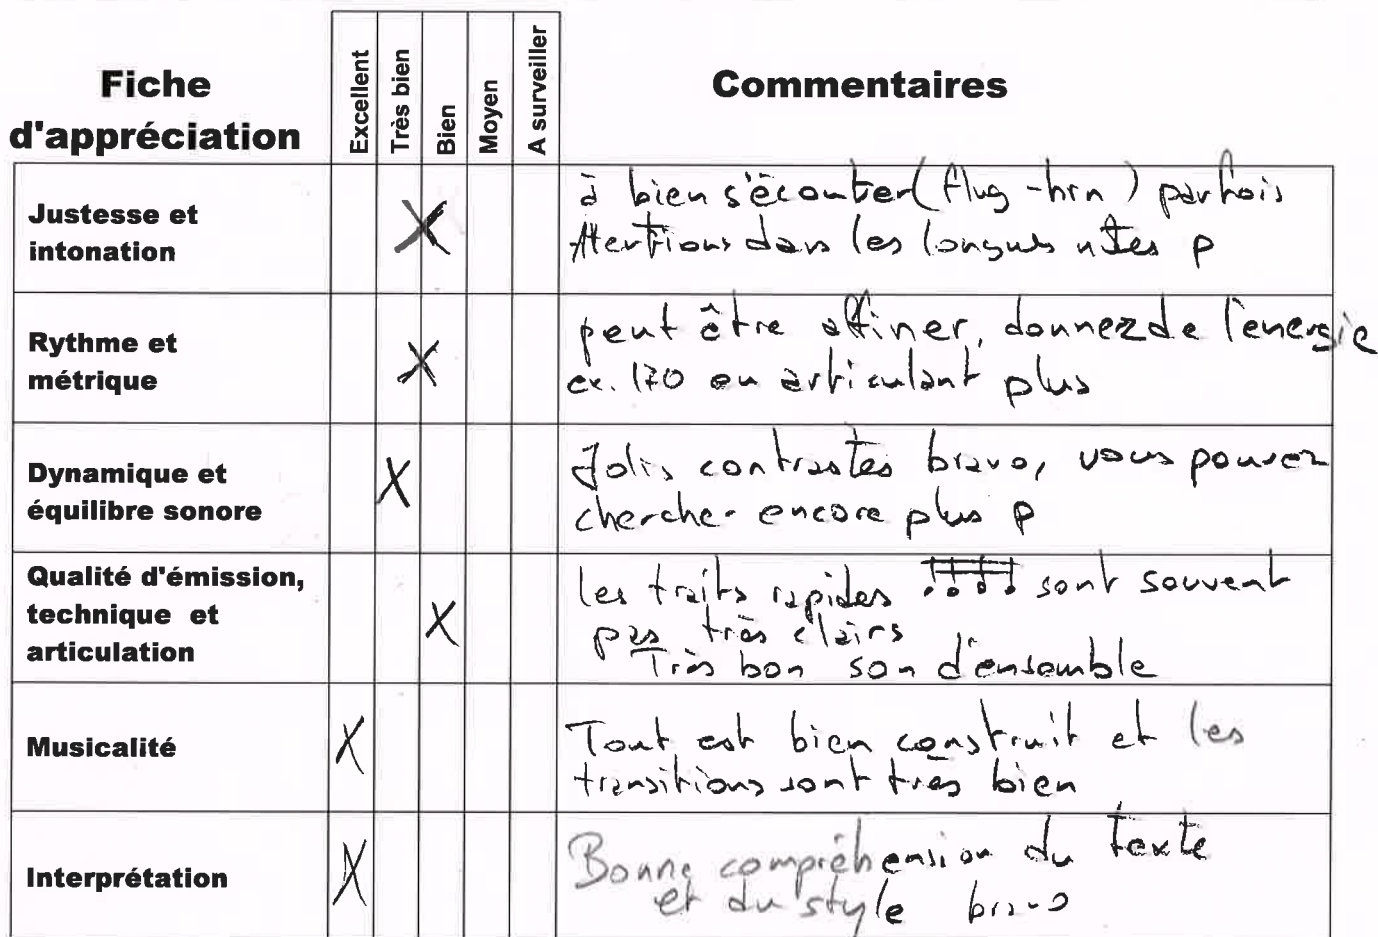 Fiche
d'appréciation
Excellent
Très bien
Bien
Moyen
A surveiller
Commentaires
Justesse et
intonation
à bien s'écouter (flug-hrn) parfois
Attentions dans les longues notes p
Rythme et
métrique
peut être affiner, donnez de l'energie
ex. 170 en articulant plus
Dynamique et
équilibre sonore
Jolis contrastes bravo, vous pouvez
chercher encore plus p
Qualité d'émission,
technique et
articulation
les traits rapides sont souvent
pas très clairs
Très bon son d'ensemble
Musicalité
Tout est bien construit et les
transitions sont très bien
Interprétation
Bonne compréhension du texte
et du style bravo